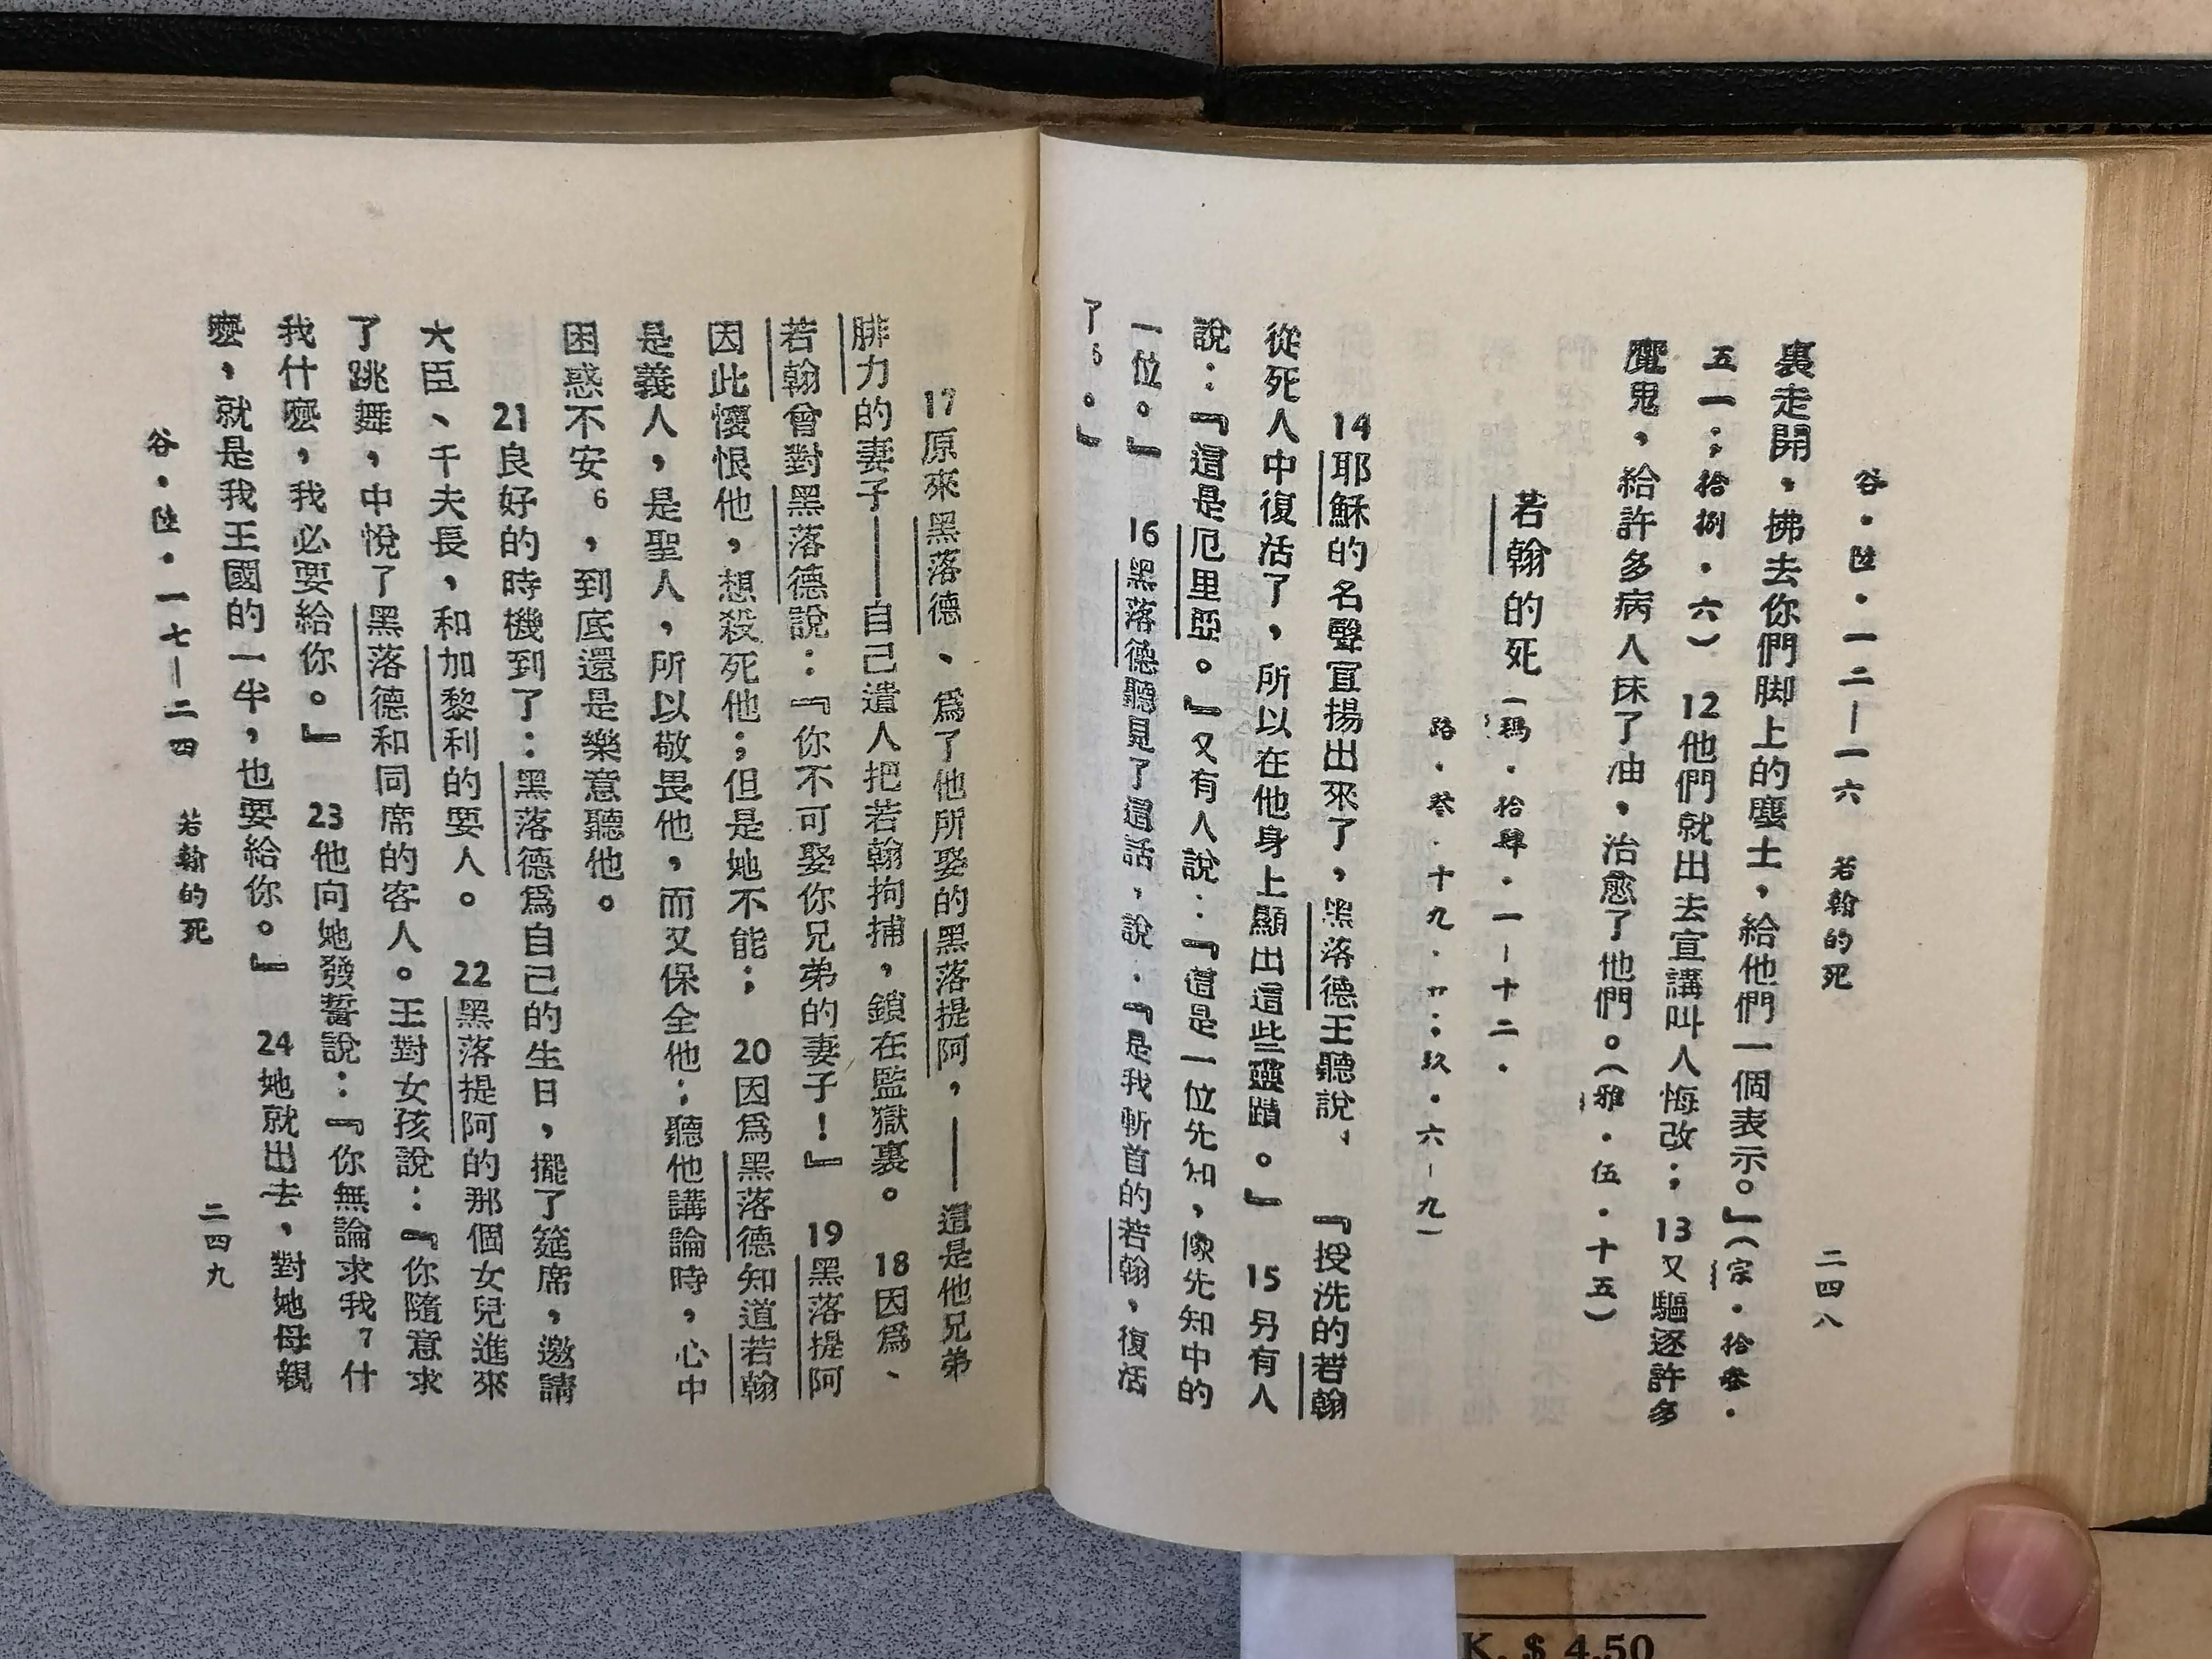 谷·陸·一二—一六 若翰的死 二四八
裏走開，拂去你們脚上的塵土，給他們一個表示。』(宗·拾叁·
五一；拾捌·六) 12他們就出去宣講叫人悔改；13又驅逐許多
魔鬼，給許多病人抹了油，治愈了他們。(雅·伍·十五)
若翰的死 (瑪·拾肆·一—十二·
路·叁·十九·廿；玖·六—九)
14耶穌的名聲宣揚出來了，黑落德王聽說，『授洗的若翰
從死人中復活了，所以在他身上顯出這些靈蹟。』 15另有人
說：『這是厄里亞。』又有人說：『這是一位先知，像先知中的
一位。』 16黑落德聽見了這話，說：『是我斬首的若翰，復活
了5。』
17原來黑落德、爲了他所娶的黑落提阿，——這是他兄弟
腓力的妻子——自己遣人把若翰拘捕，鎖在監獄裏。 18因爲、
若翰曾對黑落德說：『你不可娶你兄弟的妻子！』 19黑落提阿
因此懷恨他，想殺死他；但是她不能； 20因爲黑落德知道若翰
是義人，是聖人，所以敬畏他，而又保全他；聽他講論時，心中
困惑不安6，到底還是樂意聽他。
21良好的時機到了：黑落德爲自己的生日，擺了筵席，邀請
大臣、千夫長，和加黎利的要人。 22黑落提阿的那個女兒進來
了跳舞，中悅了黑落德和同席的客人。王對女孩說：『你隨意求
我什麼，我必要給你。』 23他向她發誓說：『你無論求我7什
麼，就是我王國的一半，也要給你。』 24她就出去，對她母親
谷·陸·一七—二四 若翰的死 二四九
K. $ 4.50